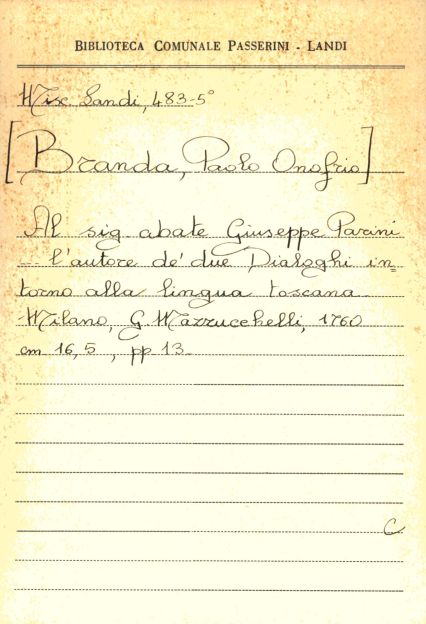 BIBLIOTECA COMUNALE PASSERINI - LANDI
Misc. Landi, 483-5°
[Branda, Paolo Onofrio]
Al sig. abate Giuseppe Parini
... l'autore de' due Dialoghi in=
torno alla lingua toscana.
Milano, G. Mazzucchelli, 1760
cm 16,5, pp 13.
C